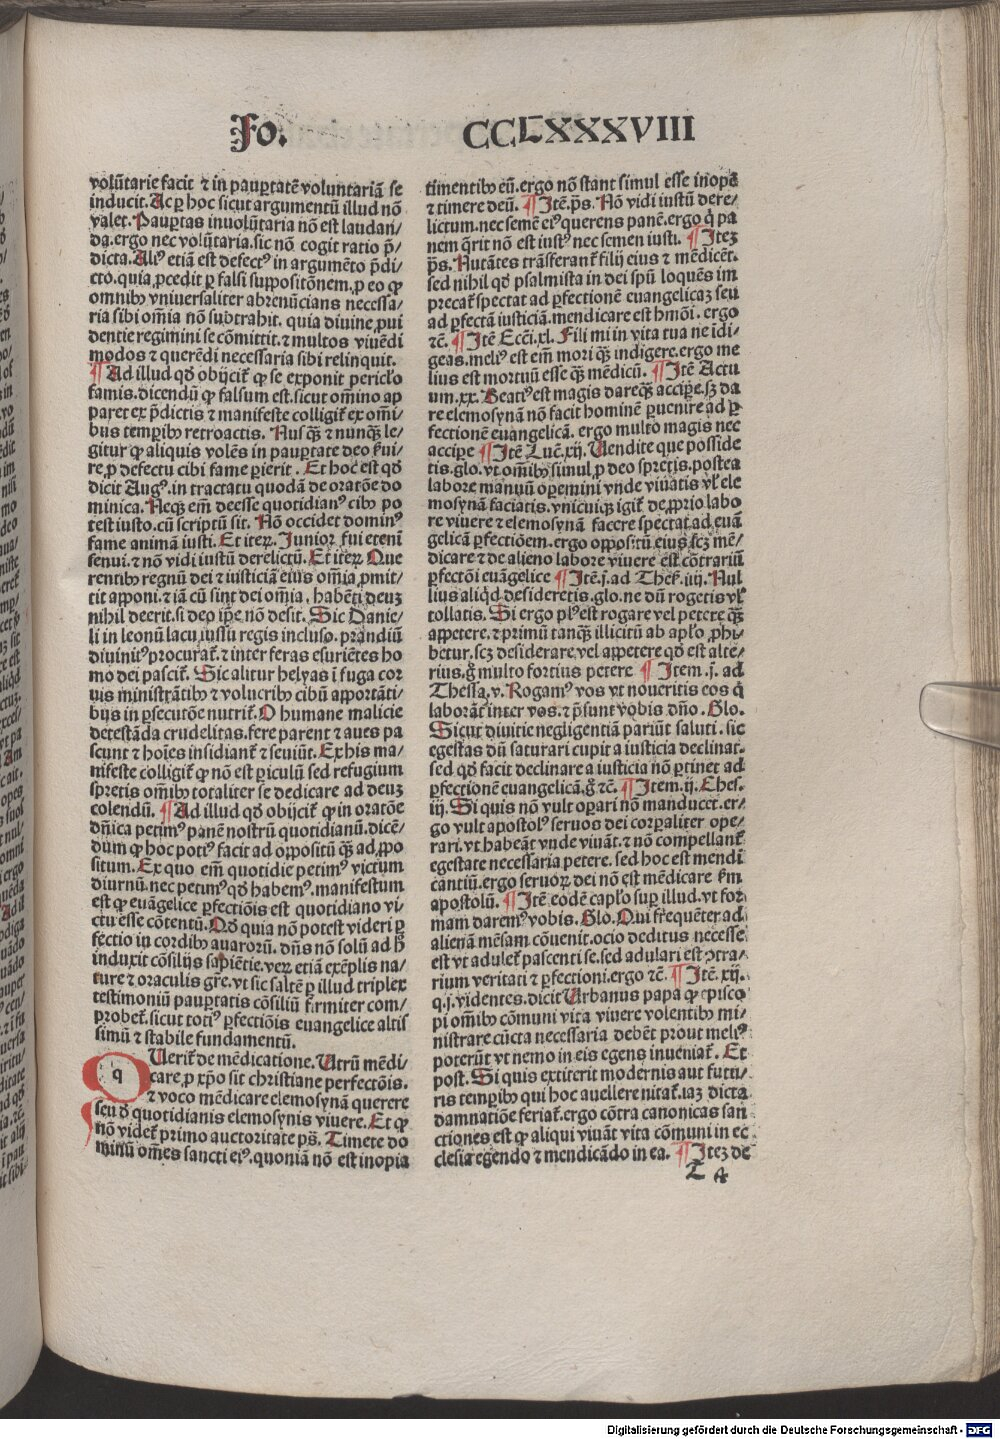 Fo. CCLXXXXVIII
volūtarie facit ⁊ in paup̱tatē voluntariā se
inducit. Ac p̱ hoc sicut argumentū illud nō
valet. Paup̱tas inuolūtaria nō est laudan/
da. ergo nec volūtaria. sic nō cogit ratio p̄/
dicta. Aliꝰ etiā est defectꝰ in argumēto p̄di/
cto. quia ꝓcedit p̱ falsi suppositōnem. p̱ eo ꝙ
omnibꝰ vniuersaliter abrenūcians necessa/
ria sibi om̄ia nō subtrahit. quia diuine ꝓui
dentie regimini se cōmittit. ⁊ multos viuēdi
modos ⁊ querēdi necessaria sibi relinquit.
¶ Ad illud qd̄ obijcit᷑ ꝙ se exponit pericl̓o
famis. dicendū ꝙ falsum est. sicut om̄ino ap
paret ex p̄dictis ⁊ manifeste colligit᷑ ex om̄i/
bus temp̱ibꝰ retroactis. Nusq̄ꝫ ⁊ nunq̄ꝫ le/
gitur ꝙ aliquis volēs in paup̱tate deo s̓ui/
re, ꝓ defectu cibi fame p̱ierit. Et hoc est qd̄
dicit Augꝰ. in tractatu quodā de oratōe do
minica. Necꝫ em̄ deesse quotidianꝰ cibꝰ po
test iusto. cū scriptū sit. Nō occidet dominꝰ
fame animā iusti. Et iterꝝ. Junior fui etenī
senui. ⁊ nō vidi iustū derelictū. Et iterꝝ. Que
rentibꝰ regnū dei ⁊ iusticiā eius om̄ia ꝓmit/
tit apponi. ⁊ iā cū sint dei om̄ia, habēti deuꝫ
nihil deerit. si deo ip̄e nō desit. Sic Danie/
li in leonū lacu iussu regis incluso. prandiū
diuinitꝰ procurat᷑. ⁊ inter feras esuriētes ho
mo dei pascit᷑. Sic alitur helyas ī fuga cor
uis ministrātibꝰ ⁊ volucribꝰ cibū apportāti/
bus in p̱secutōe nutrit᷑. O humane malicie
detestāda crudelitas. fere parcent ⁊ aues pa
scunt ⁊ hoīes insidiant᷑ ⁊ seuiūt. Ex his ma/
nifeste colligit᷑ ꝙ nō est p̱iculū sed refugium
spretis om̄ibꝰ totaliter se dedicare ad deuꝫ
colendū. ¶ Ad illud qd̄ obijcit᷑ ꝙ in oratōe
dn̄ica petimꝰ panē nostrū quotidianū. dicē/
dum ꝙ hoc potiꝰ facit ad oppositū q̄ꝫ ad ꝓpo
situm. Ex quo em̄ quotidie petimꝰ victum
diurnū. nec petimꝰ qd̄ habemꝰ. manifestum
est ꝙ euāgelice p̱fectiōis est quotidiano vi/
ctu esse cōtentū. Qd̄ quia nō potest videri p̱
fectio in cordibꝰ auarorū. dn̄s nō solū ad h̄
induxit cōsilijs sapiētie. verꝝ etiā exēplis na/
ture ⁊ oraculis gr̄e. vt sic saltē p̱ illud triplex
testimoniū paup̱tatis cōsiliū firmiter com/
probet᷑. sicut totiꝰ p̱fectiōis euangelice altis
simū ⁊ stabile fundamentū.
QUerit᷑ de mēdicatione. Utrū mēdi/
care ꝓ xp̄o sit christiane perfectōis.
⁊ voco mēdicare elemosynā querere
seu d̓ quotidianis elemosynis viuere. Et ꝙ
nō videt᷑ primo auctoritate ps̄. Timete do
minū om̄es sancti eiꝰ. quoniā nō est inopia
timentibꝰ eū. ergo nō stant simul esse inopē
⁊ timere deū. ¶ Itē. ps̄. Nō vidi iustū dere/
lictum. nec semē eiꝰ querens panē. ergo q̇ pa
nem q̄rit nō est iustꝰ nec semen iusti. ¶ Iteꝫ
ps̄. Nutātes trāsferant᷑ filij eius ⁊ mēdicēt.
sed nihil qd̄ psalmista in dei spū loquēs im
precat᷑ spectat ad p̱fectionē euangelicaꝫ seu
ad p̱fectā iusticiā. mendicare est hmōi. ergo
⁊c̄. ¶ Itē Ecci̅. xl. Fili mi in vita tua ne īdi/
geas. meliꝰ est em̄ mori q̄ꝫ indigere. ergo me
lius est mortuū esse q̄ꝫ mēdicū. ¶ Itē Actu
um. xx. Beatiꝰ est magis dare q̄ꝫ accip̱e. sꝫ da
re elemosynā nō facit hominē p̱uenire ad p̱
fectionē euangelicā. ergo multo magis nec
accip̱e ¶ Itē Luc̄. xij. Uendite que posside
tis. glo. vt om̄ibꝰ simul ꝓ deo spretis. postea
labore manuū op̱emini vnde viuatis vl̓ ele
mosynā faciatis. vnicuiqꝫ igit᷑ de ꝓprio labo
re viuere ⁊ elemosynā facere spectat ad euā
gelicā p̱fectiōem. ergo oppositū eiꝰ scꝫ mē/
dicare ⁊ de alieno labore viuere est cōtrariū
p̱fectōi euāgelice ¶ Itē. j. ad Thes̓. iiij. Nul
lius aliqd̓ desideretis. glo. ne dū rogetis vl̓
tollatis. Si ergo plꝰ est rogare vel petere q̄ꝫ
appetere. ⁊ primū tanq̄ꝫ illicitū ab apl̓o ꝓhi/
betur. scꝫ desiderare vel appetere qd̄ est alte/
rius. g̊ multo fortius petere ¶ Item. j. ad
Thessa. v. Rogamꝰ vos vt noueritis eos q̇
laborāt inter vos. ⁊ p̄sunt vobis dn̄o. Glo.
Sicut diuitie negligentiā pariūt saluti. sic
egestas dū saturari cupit a iusticia declinat.
sed qd̄ facit declinare a iusticia nō p̱tinet ad
p̱fectionē euangelicā. g̊ ⁊c̄. ¶ Item. ij. Thes.
iij. Si quis nō vult op̱ari nō manducet. er/
go vult apostolꝰ seruos dei corp̱aliter ope/
rari. vt habeāt vnde viuāt. ⁊ nō compellant᷑
egestate necessaria petere. sed hoc est mendi
cantiū. ergo seruorꝝ dei nō est mēdicare s̓m
apostolū. ¶ Itē eodē capl̓o sup̱ illud. vt for
mam daremꝰ vobis. Glo. Qui freq̄uēter ad
alienā mēsam cōuenit. ocio deditus necesse
est vt adulet᷑ pascenti se. sed adulari est ꝯtra/
rium veritati ⁊ p̱fectioni. ergo ⁊c̄. ¶ Itē. xij.
q. j. videntes. dicit Urbanus papa ꝙ episco
pi om̄ibꝰ cōmuni vita viuere volentibꝰ mi/
nistrare cūcta necessaria debēt prout meliꝰ
poterūt vt nemo in eis egens inueniat᷑. Et
post. Si quis extiterit modernis aut futu/
ris temp̱ibꝰ qui hoc auellere nitat᷑. iaꝫ dicta
damnatiōe feriat᷑. ergo cōtra canonicas san
ctiones est ꝙ aliqui viuāt vita cōmuni in ec
clesia egendo ⁊ mendicādo in ea. ¶ Iteꝫ de
Digitalisierung gefördert durch die Deutsche Forschungsgemeinschaft - DFG